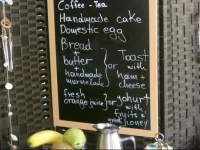 Coffee - Tea
Handmade cake
Domestic egg
Bread
+
butter or Toast
+ with
handmade ham +
marmelade cheese
fresh
orange juice or yohurt
with
fruits +
honey